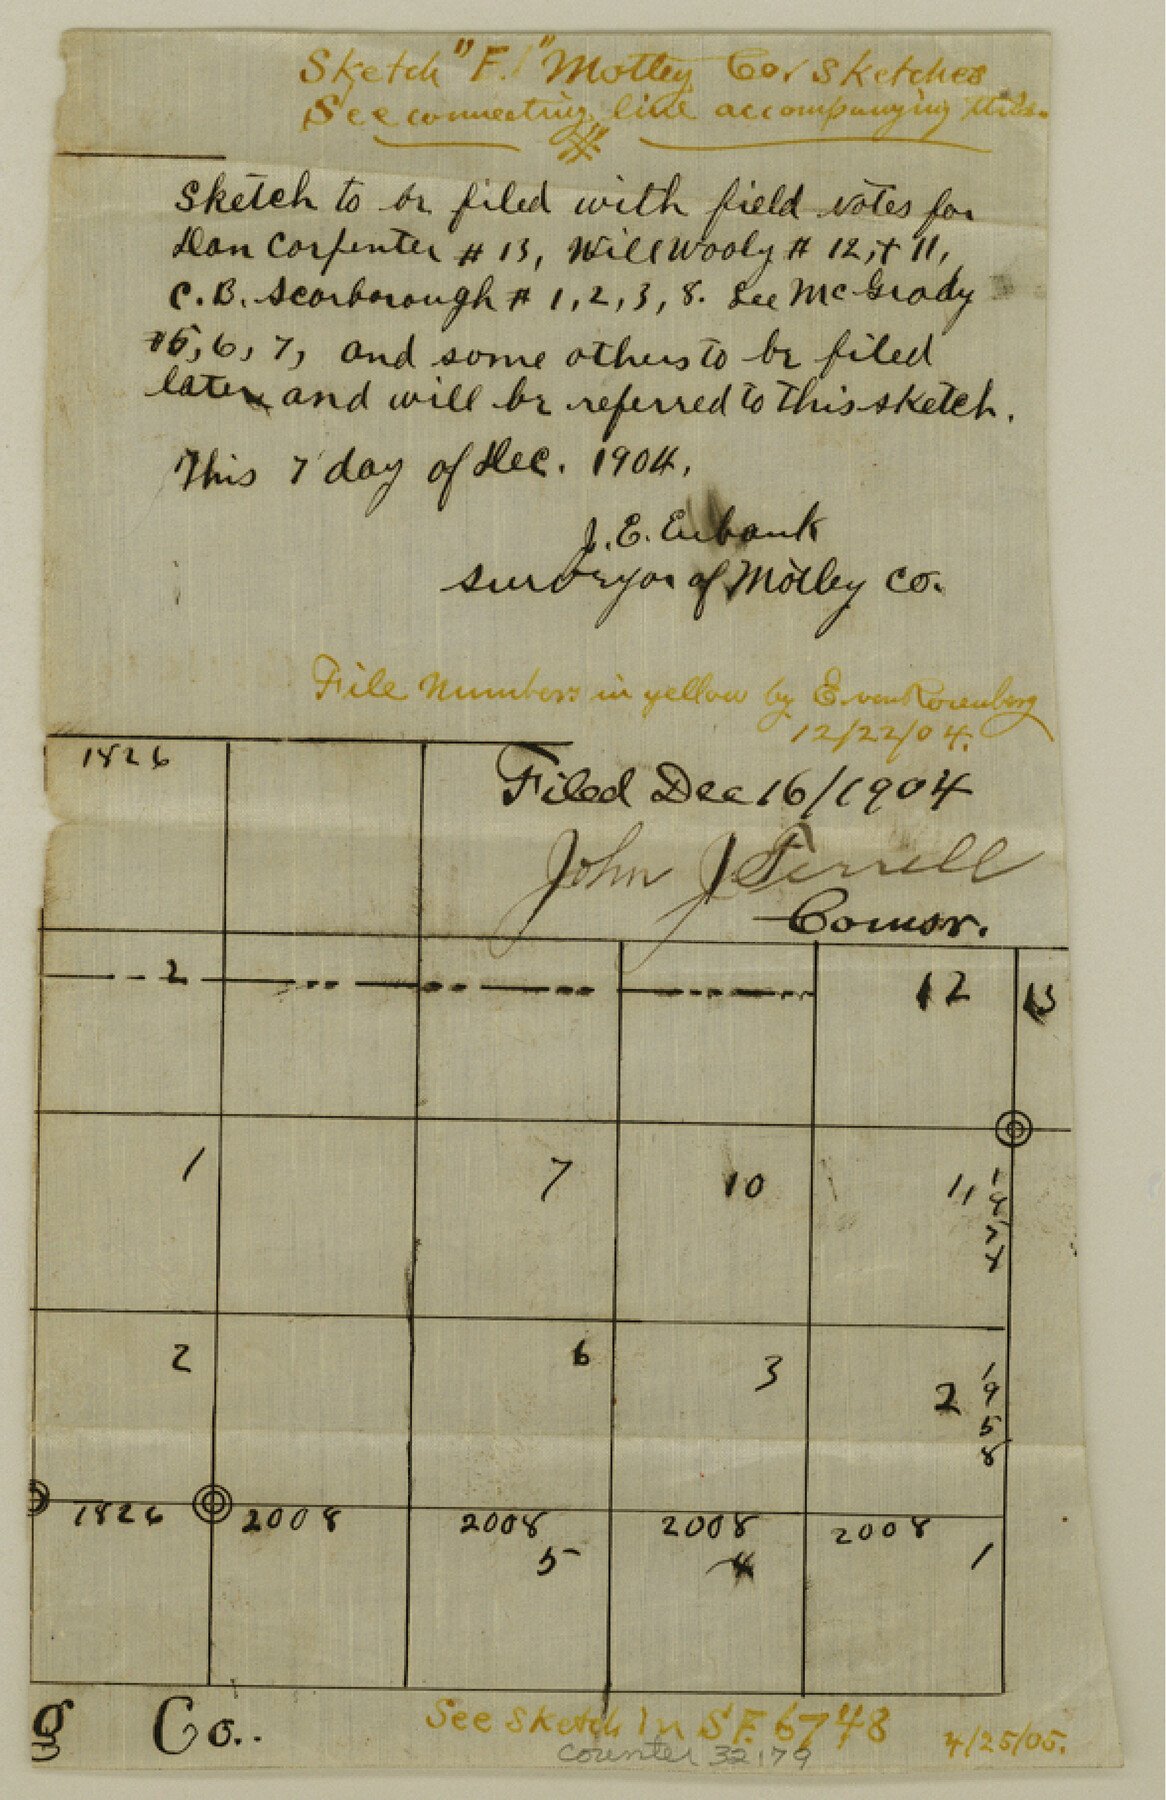 Sketch "F." Motley Co. Sketches
See connecting line accompanying this.
Sketch to be filed with field notes for
Dan Carpenter # 13, Will Wooly # 12, + 11,
C. B. Scarborough # 1, 2, 3, 8. Lee McGrady
#5, 6, 7, and some others to be filed
later and will be referred to this sketch.
This 7 day of Dec. 1904.
J. E. Eubank
surveyor of Motley Co.
File Numbers in yellow by E. von Rosenberg
12/22/04.
1826
Filed Dec 16/1904
John J. Terrell
Comsr.
2
12
13
1
7
10
11
2
6
3
2
1958
1826
2008
2008
2008
2008
5
4
1
g Co..
See Sketch in S.F. 6748
counter 32179
4/25/05.